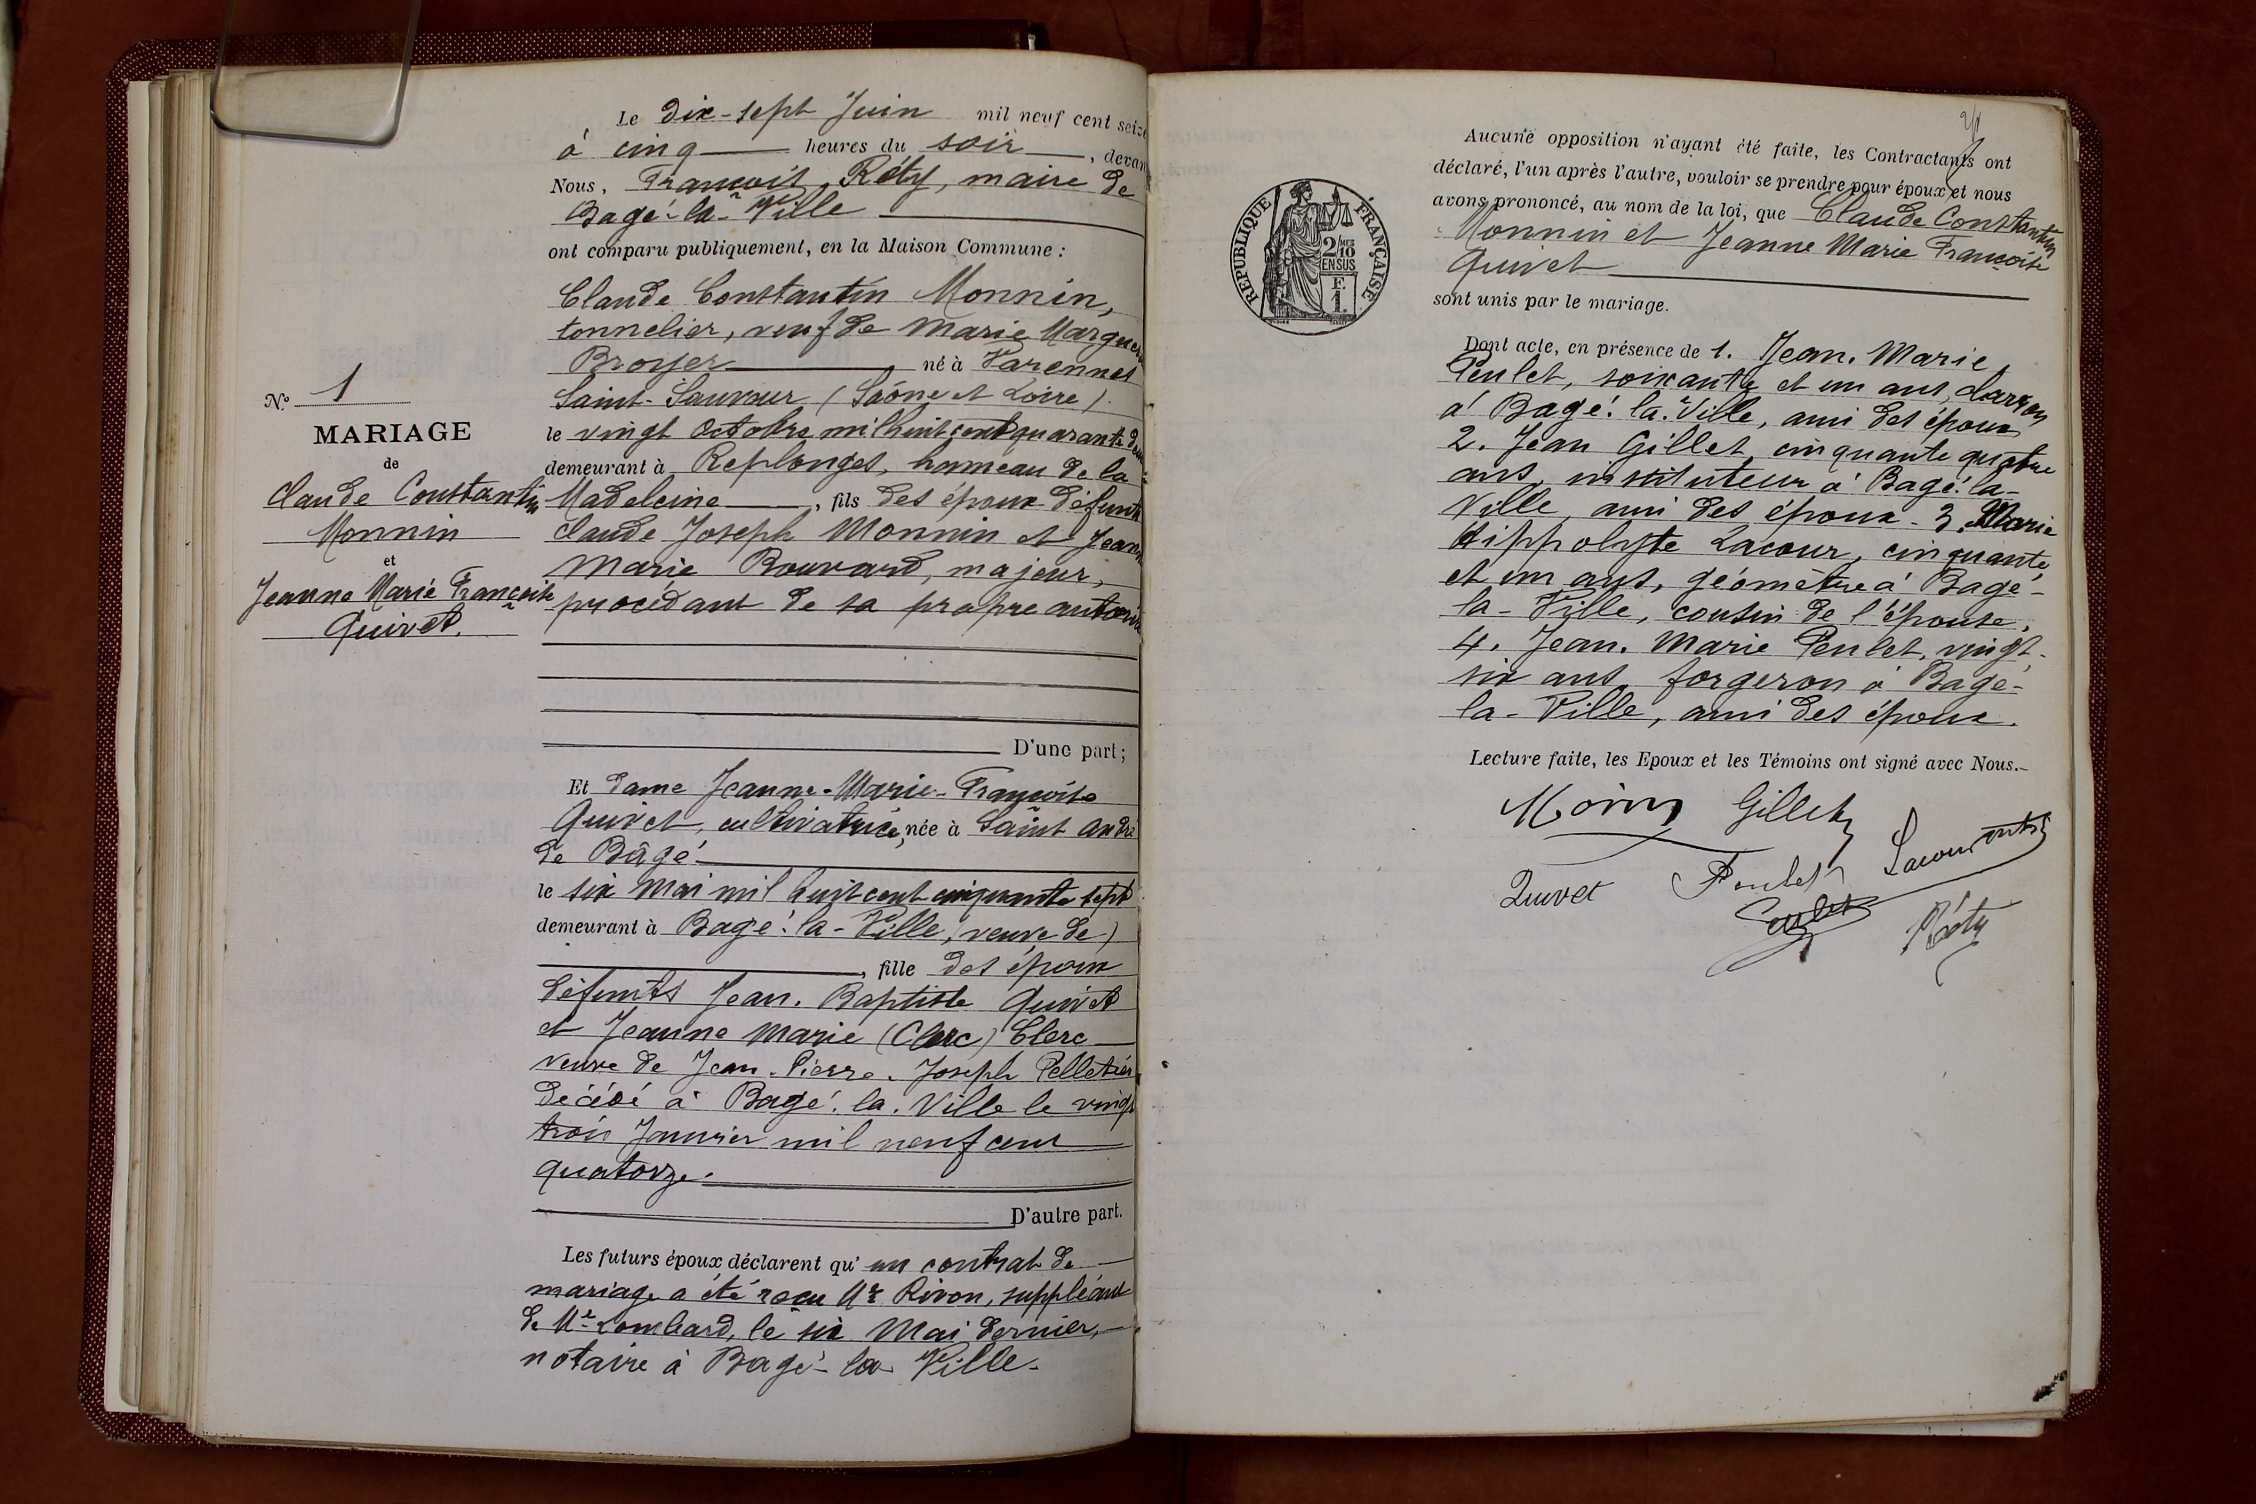 Le Dix-sept Juin mil neuf cent seize
à cinq heures du soir, devant
Nous, François Réty, maire de
Bagé-la-Ville
ont comparu publiquement, en la Maison Commune :
Claude Constantin Monnin,
tonnelier, veuf de Marie Marguerite
Broyer né à Varennes
Saint-Sauveur (Saône et Loire)
le vingt Octobre mil huit cent quarante deux
demeurant à Replonges, hameau de la
Madeleine, fils des époux défunts
Claude Joseph Monnin et Jeanne
Marie Bouvard, majeur,
procédant de sa propre autorité
D'une part;
N° 1
MARIAGE
de
Claude Constantin
Monnin
et
Jeanne Marie Françoise
Quivet.
Et dame Jeanne-Marie-Françoise
Quivet, cultivatrice, née à Saint André
de Bâgé
le six Mai mil huit cent cinquante sept
demeurant à Bagé-la-Ville, veuve de)
, fille des époux
défunts Jean. Baptiste Quivet
et Jeanne Marie (Clerc) Clerc
veuve de Jean-Pierre-Joseph Pelletier
décédé à Bagé-la-Ville le vingt
trois Janvier mil neuf cent
quatorze.
D'autre part.
Les futurs époux déclarent qu'un contrat de
mariage a été reçu Me Rivon, suppléant
de Me Lombard, le six Mai dernier,
notaire à Bagé-la-Ville.
Aucune opposition n'ayant été faite, les Contractants ont
déclaré, l'un après l'autre, vouloir se prendre pour époux et nous
avons prononcé, au nom de la loi, que Claude Constantin
Monnin et Jeanne Marie Françoise
Quivet
sont unis par le mariage.
RÉPUBLIQUE FRANÇAISE
2/10
EN SUS
F.
1.
Dont acte, en présence de 1. Jean. Marie
Peulet, soixante et un ans,
à Bagé-la-Ville, ami des époux
2. Jean Gillet, cinquante quatre
ans, instituteur à Bagé-la-
Ville, ami des époux - 3. Marie
Hippolyte Lacour, cinquante
et un ans, géomètre à Bagé-
la-Ville, cousin de l'épouse,
4. Jean. Marie Peulet, vingt-
six ans, forgeron à Bagé-
la-Ville, ami des époux.
Lecture faite, les Epoux et les Témoins ont signé avec Nous.
Gillet
Lacour
Quivet Peulet
Peulet
Réty